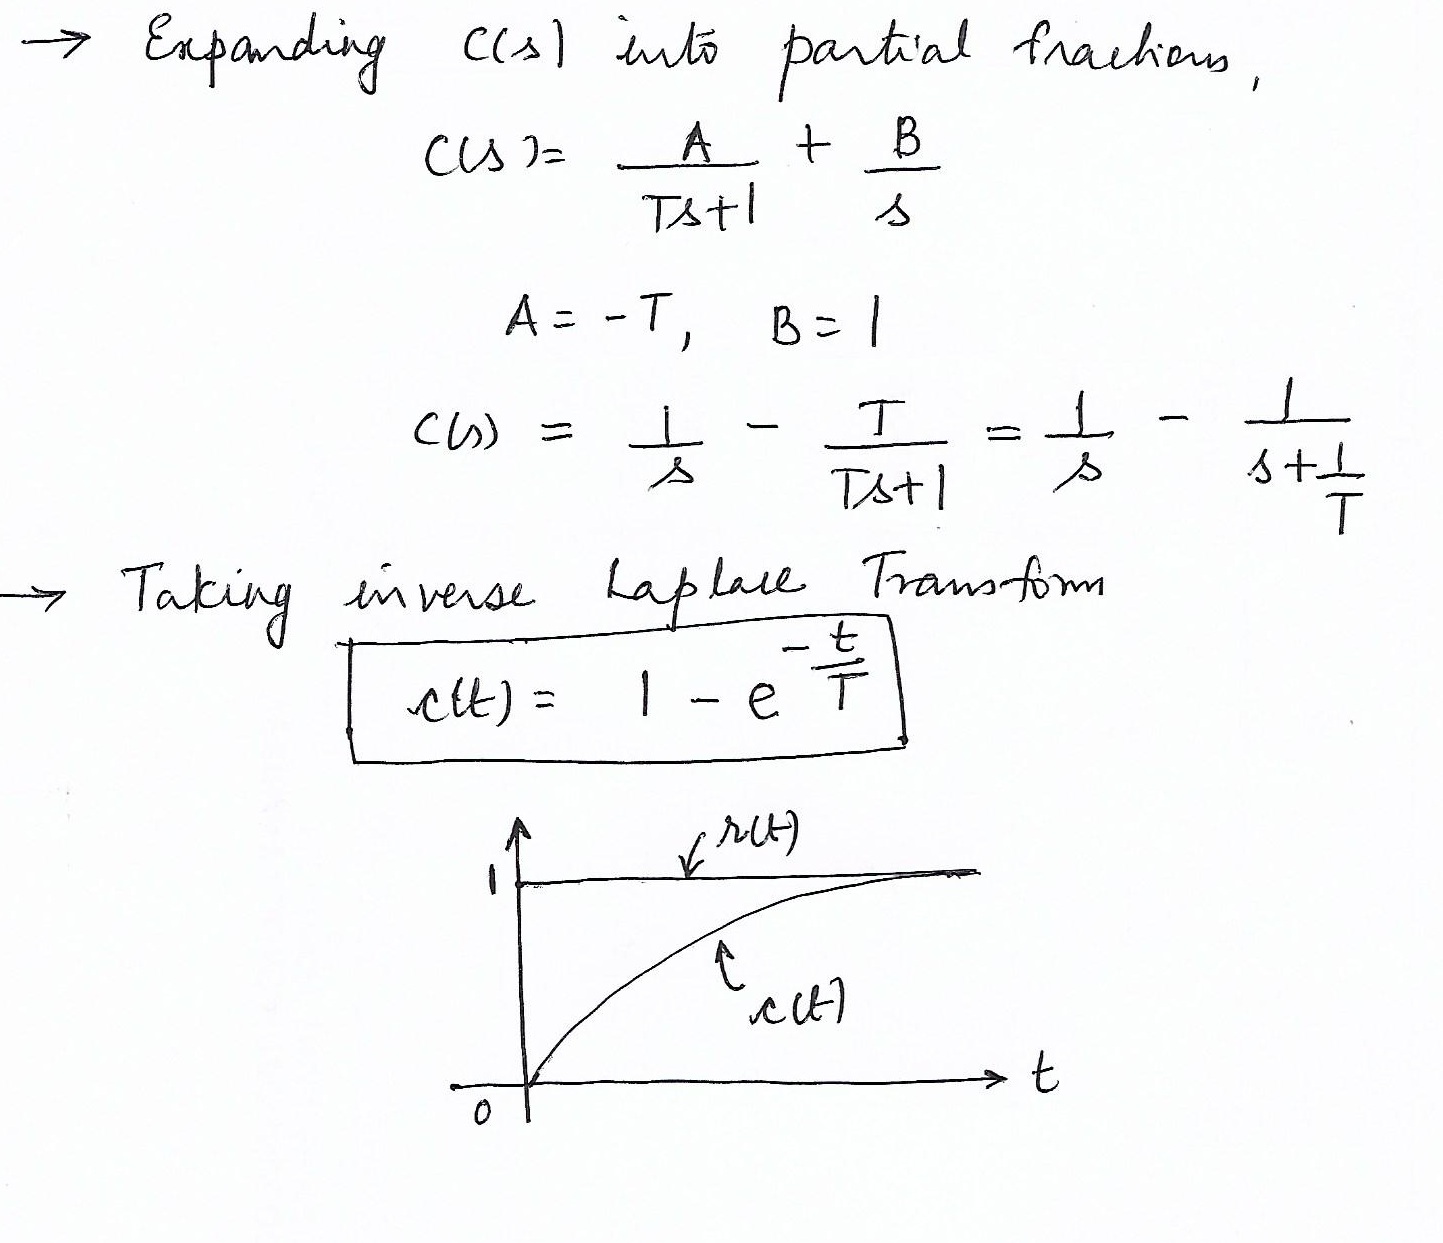 → Expanding C(s) into partial fractions,
C(s) = A/(Ts+1) + B/s
A = -T, B = 1
C(s) = 1/s - T/(Ts+1) = 1/s - 1/(s+1/T)
→ Taking inverse Laplace Transform
c(t) = 1 - e^(-t/T)
r(t)
1
c(t)
t
0